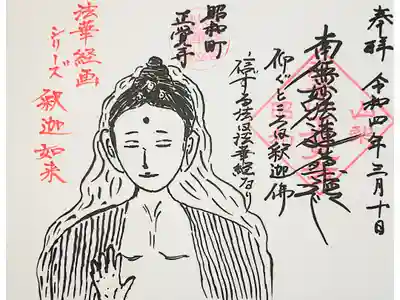 奉拝 令和四年三月十日
南無妙法蓮華経
仰ぐところは釈迦佛
信ずる法は法華経なり
昭和町
正覚寺
法華経画
シリーズ 釈迦如来